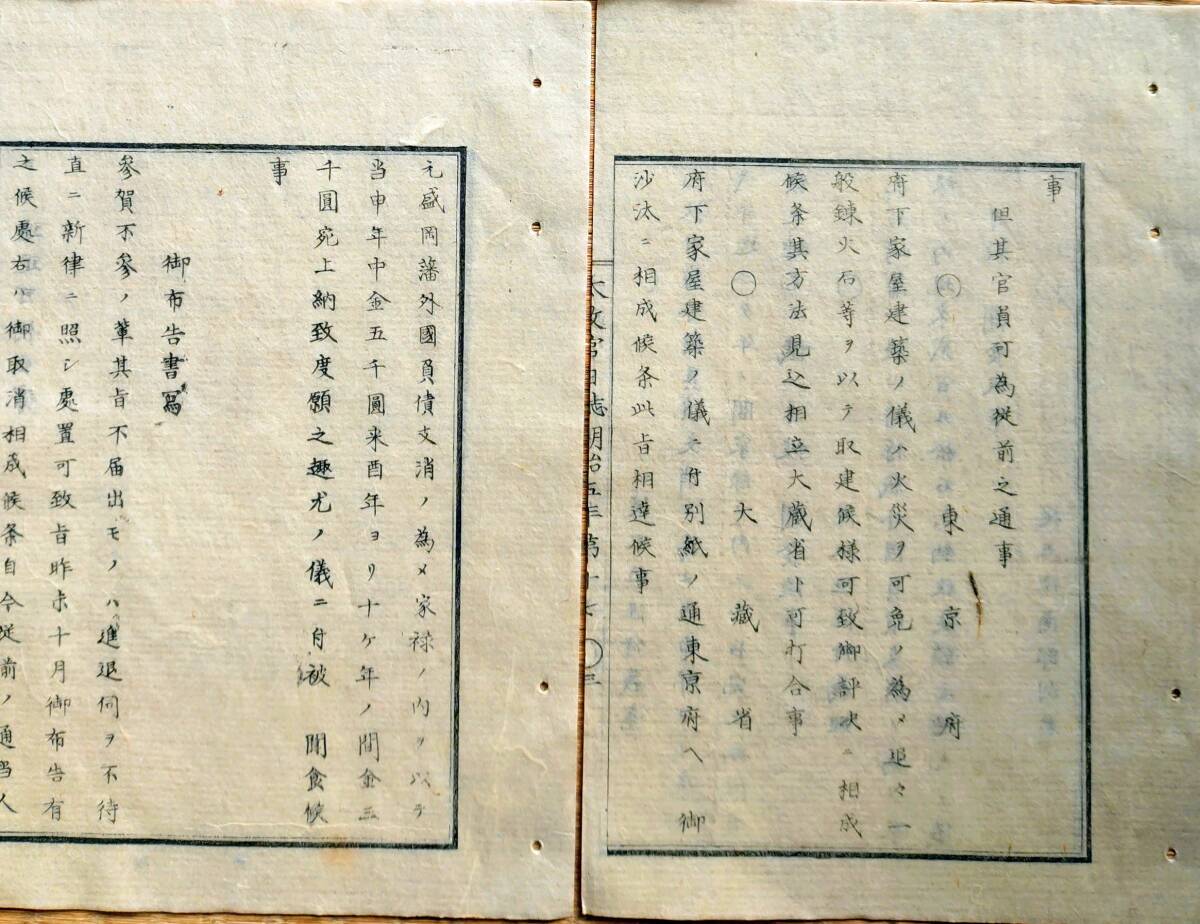 事
但其官員可為従前之通事
〇東京府
府下家屋建築ノ儀ハ火災ヲ可免ノ為メ追々一
般錬火石等ヲ以テ取建候様可致御評決ニ相成
候条其方法見込相立大蔵省ト可打合事
〇大藏省
府下家屋建築ノ儀ニ付別紙ノ通東京府ヘ御
沙汰ニ相成候条此旨相達候事
太政官日志明治五年第十七〇三
元盛岡藩外國負債支消ノ為メ家禄ノ内ヲ以テ
当申年中金五千圓来酉年ヨリ十ケ年ノ間金三
千圓宛上納致度願之趣尤ノ儀ニ付被聞食候
事
御布告書寫
参賀不参ノ輩其旨不届出モノハ進退伺ヲ不待
直ニ新律ニ照シ處置可致旨昨未十月御布告有
之候處右ハ御取消相成候条自今従前ノ通当人